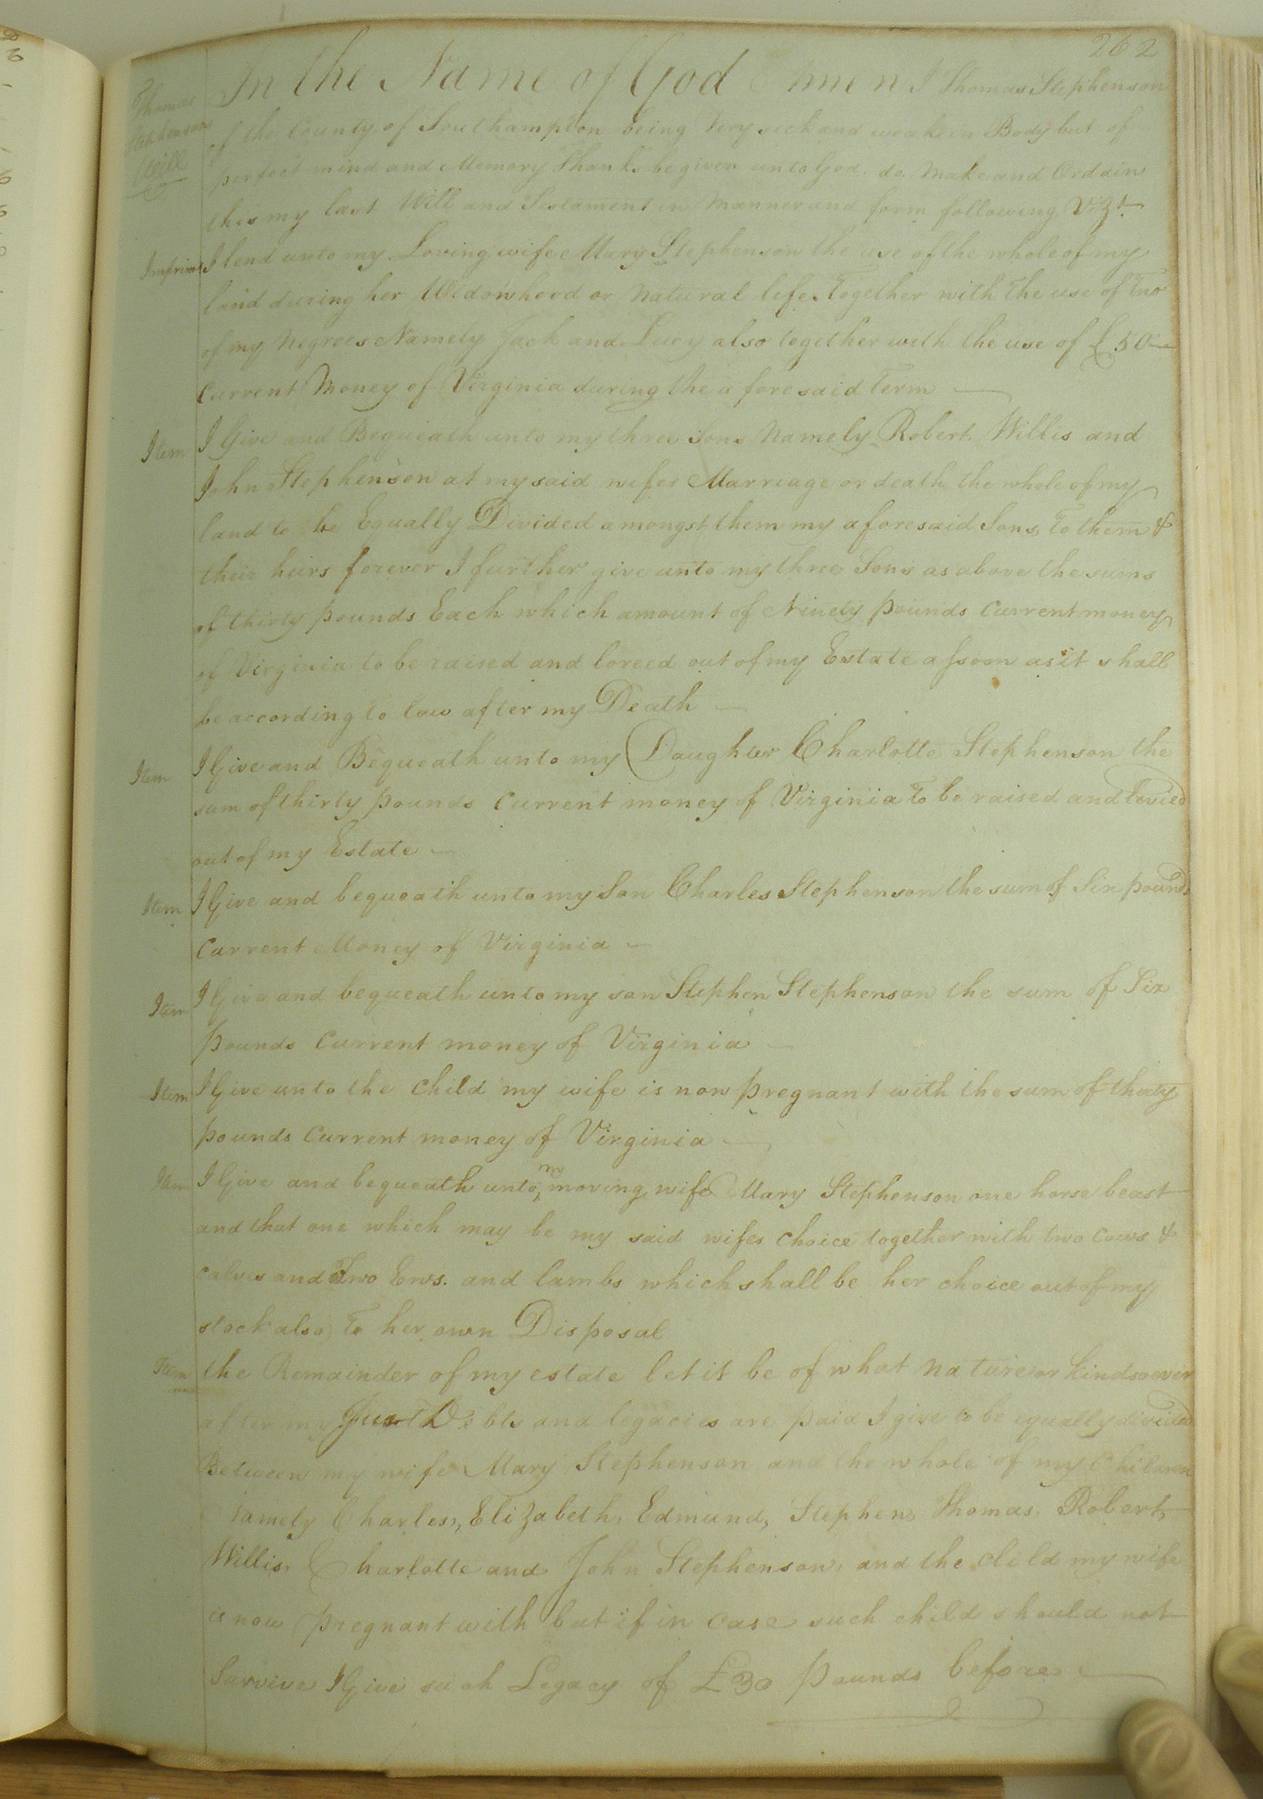 262
In the Name of God Amen I Thomas Stephenson
Thomas
Stephensons
Will
of the County of Southampton being Very sick and weake in Body but of
perfect mind and Memory Thanks be given unto God. do make and Ordain
this my last Will and Testament in Manner and form following Vizt.
Imprims I lend unto my Loving wife Mary Stephenson the use of the whole of my
land during her Widowhood or Natural life. Together with the use of Two
of my Negroes Namely Jack and Lucy also together with the use of £50
Current Money of Virginia during the aforesaid Term
Item I Give and Bequeath unto my three Sons Namely Robert Willis and
John Stephenson at my said wifes Marriage or death the whole of my
land to be Equally Divided amongst them my aforesaid Sons, To them &
their hiirs forever I further give unto my three Sons as above the sums
of thirty pounds Each which amount of Ninety pounds Current money
of Virginia to be raised and leveed out of my Estate assoon as it shall
be according to law after my Death
Item I Give and Bequeath unto my Daughter Charlotte Stephenson the
sum of thirty pounds Current money of Virginia To be raised and levied
out of my Estate
Item I Give and bequeath unto my Son Charles Stephenson the sum of Six pounds
Current Money of Virginia
Item I Give and bequeath unto my son Stephen Stephenson the sum of Six
pounds Current money of Virginia
Item I Give unto the Child my wife is now pregnant with the sum of thirty
pounds Current money of Virginia
Item I Give and bequeath unto my moving wife Mary Stephenson one horse beast
and that one which may be my said wifes Choice together with two Cows &
Calves and Two Ews. and lambs which shall be her choice out of my
stock also, To her own Disposal
Item the Remainder of my estate let it be of what Nature or kindsoever
after my Just Debts and legacies are paid I give to be equally divided
Between my wife Mary Stephenson and the whole of my Children
Namely Charles, Elizabeth, Edmund, Stephen, Thomas, Robert,
Willis, Charlotte and John Stephenson, and the child my wife
is now pregnant with but if in Case such child should not
Survive I Give such Legacy of £30 Pounds before